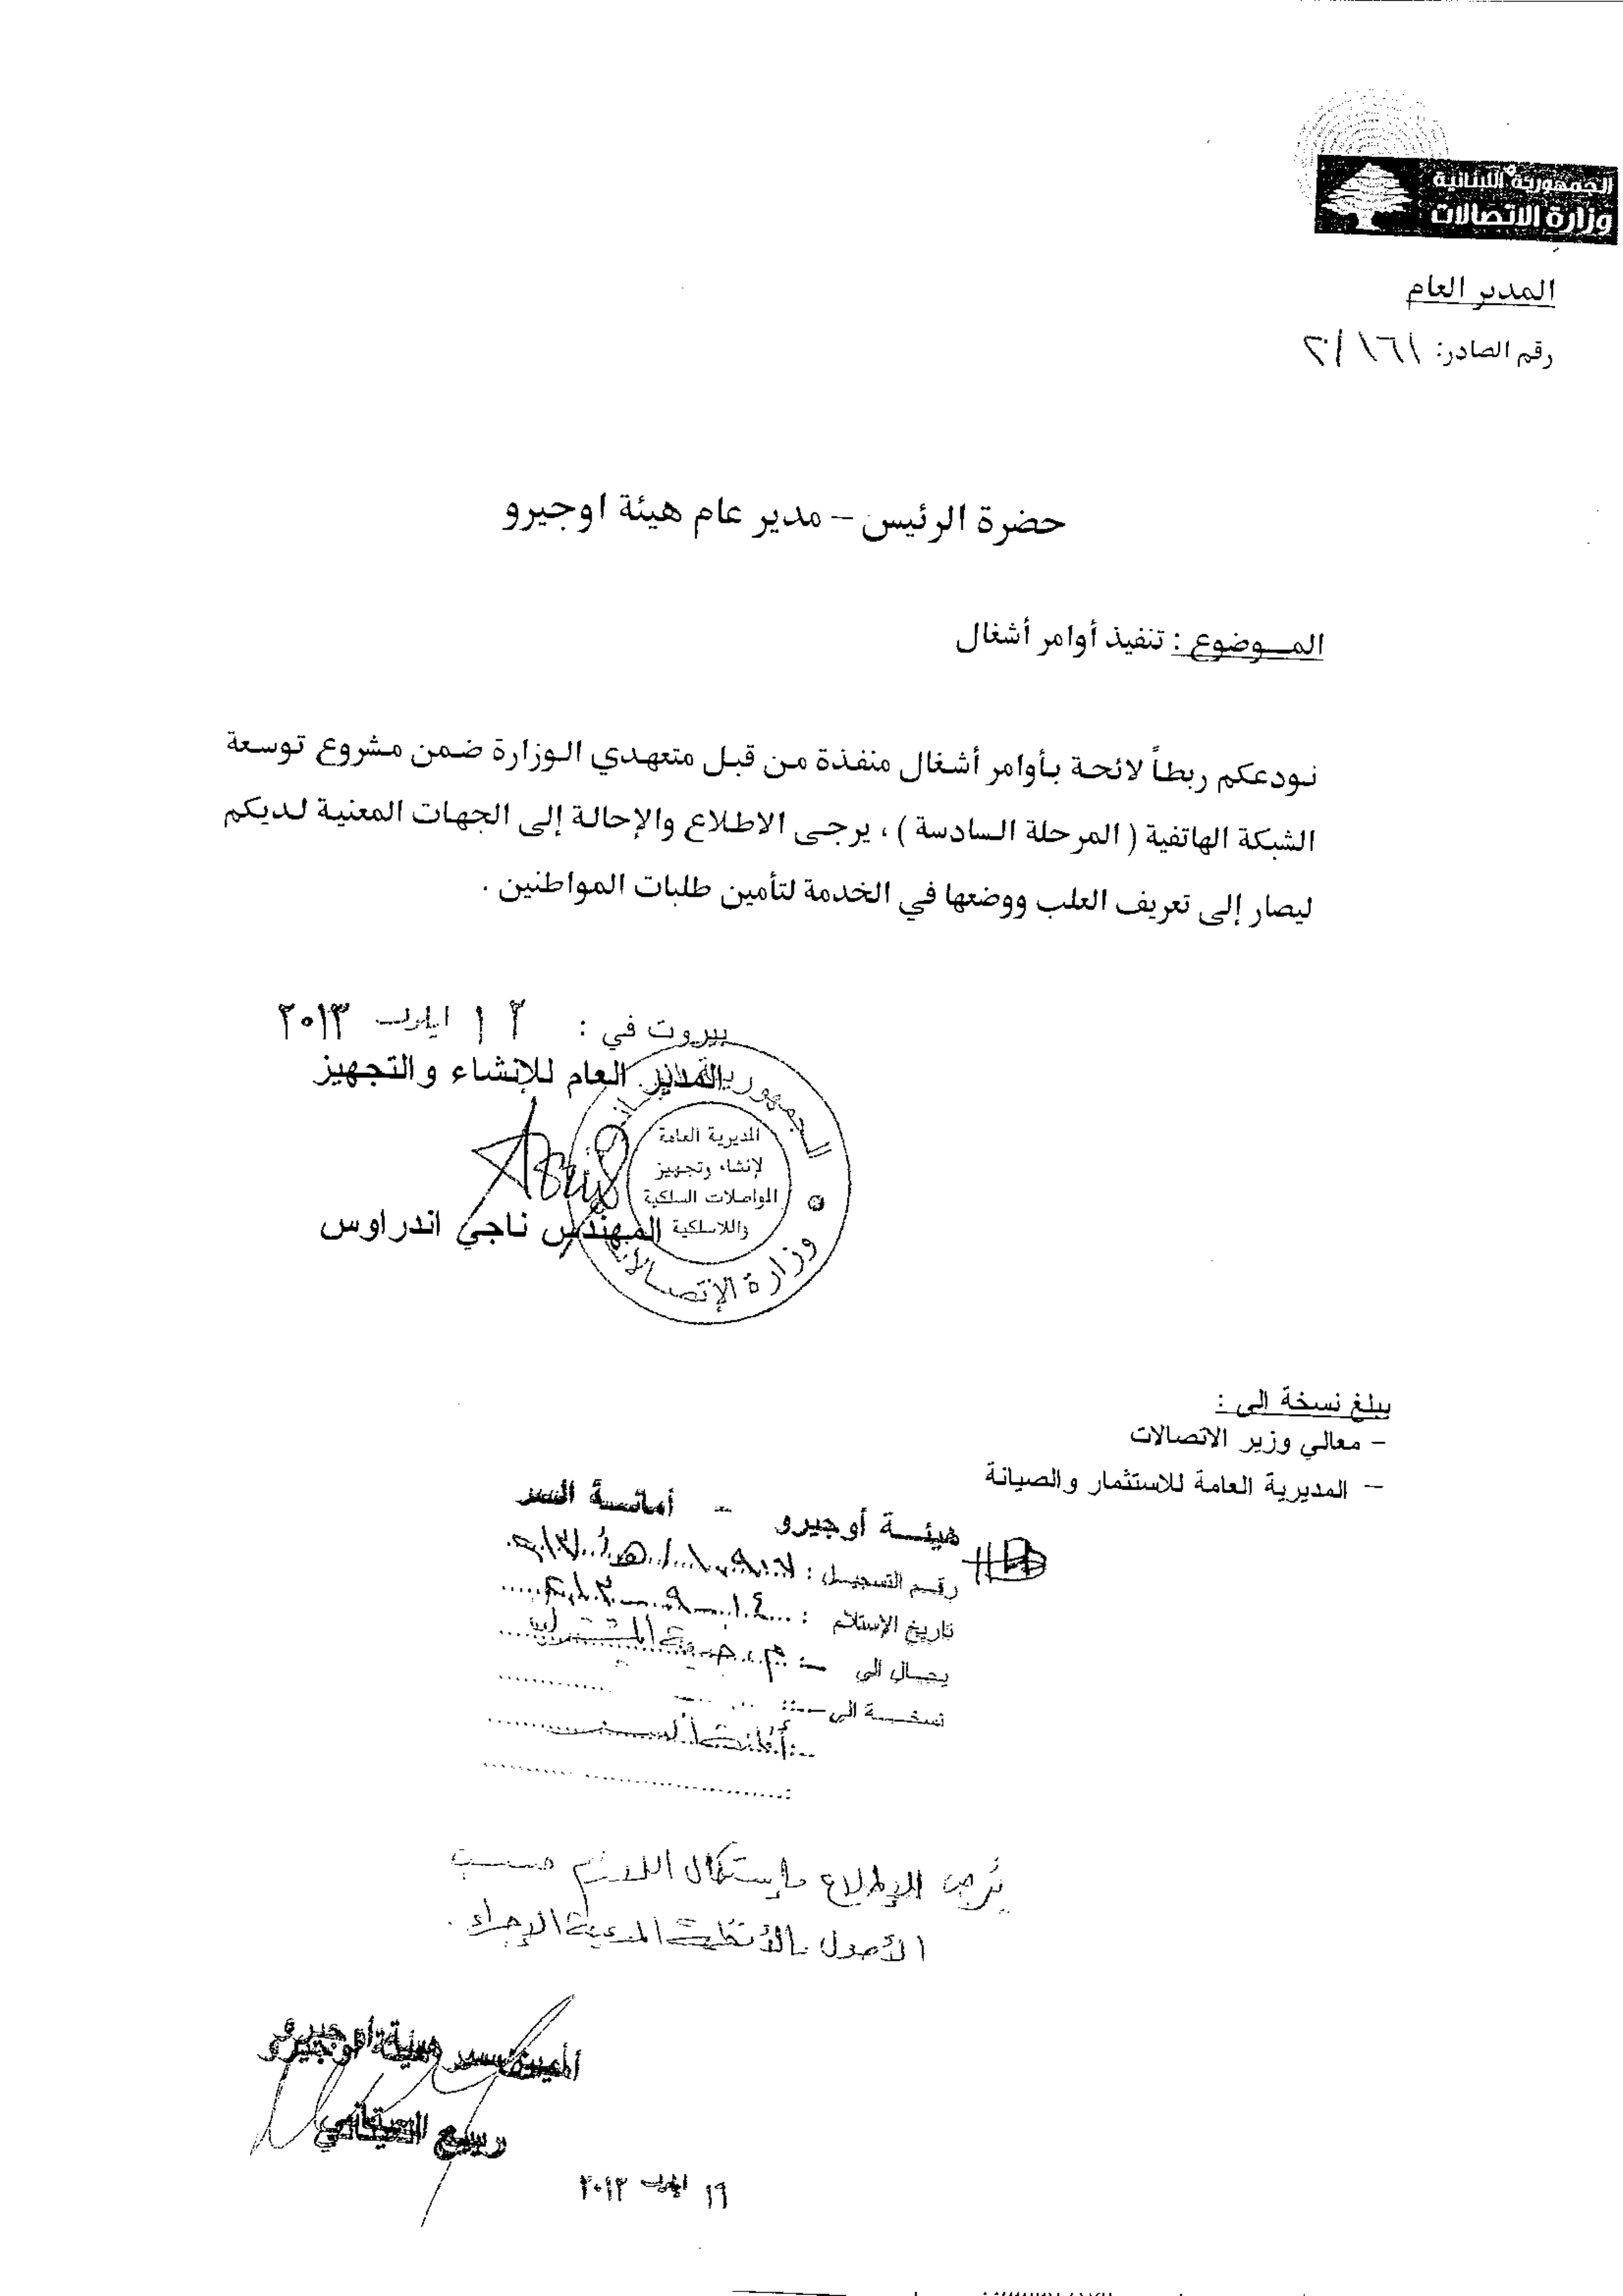 الجمهورية اللبنانية
وزارة الاتصالات
المدير العام
رقم الصادر: ١٦١/ ٢
حضرة الرئيس – مدير عام هيئة اوجيرو
الموضوع : تنفيذ أوامر أشغال
نودعكم ربطاً لائحة بأوامر أشغال منفذة من قبل متعهدي الوزارة ضمن مشروع توسعة
الشبكة الهاتفية ( المرحلة السادسة ) ، يرجى الاطلاع والإحالة إلى الجهات المعنية لديكم
ليصار إلى تعريف العلب ووضعها في الخدمة لتأمين طلبات المواطنين .
بيروت في : ١٢ ايلول ٢٠١٣
المدير العام للإنشاء والتجهيز
المهندس ناجي اندراوس
الجمهورية اللبنانية
المديرية العامة
لإنشاء وتجهيز
المواصلات السلكية
واللاسلكية
وزارة الإتصالات
يبلغ نسخة الى :
– معالي وزير الاتصالات
– المديرية العامة للاستثمار والصيانة
هيئة أوجيرو – أمانة السر
رقم التسجيل :
تاريخ الإستلام :
يحال الى :
نسخة الى :
يُرجى الإطلاع وإستكمال اللازم حسب
الأصول والأنظمة المرعية الإجراء .
أمين سر هيئة أوجيرو
١٦ ايلول ٢٠١٣